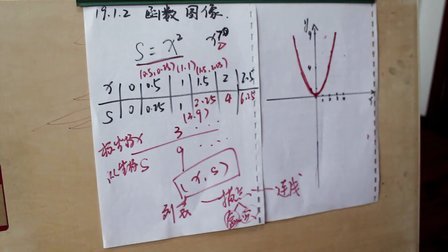 19.1.2 函数图像.
S = x² x>0
(0.5,0.25) (1.1) (1.5,2.25)
x 0 0.5 1 1.5 2 2.5
S 0 0.25 1 2.25 4 6.25
(3.9)
横坐标x 3 ...
纵坐标S 9 ...
(x, s)
列表 — 描点 — 连线
y
x